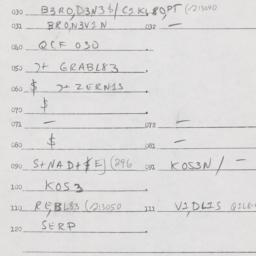 030 B3RO,D3N3$/C1K480PT (/213040
031 BRON3V1N 032 —
040 QCF 030
050 7+ GRABL83
060 $ 7+ ZERN1S
070 $
071 — 072 —
081 $ 082 —
090 S+NAD+$E) (296 091 KOS3N / —
100 KOS3
110 REBL83 (/213050 111 V1,DL1S
120 SERP